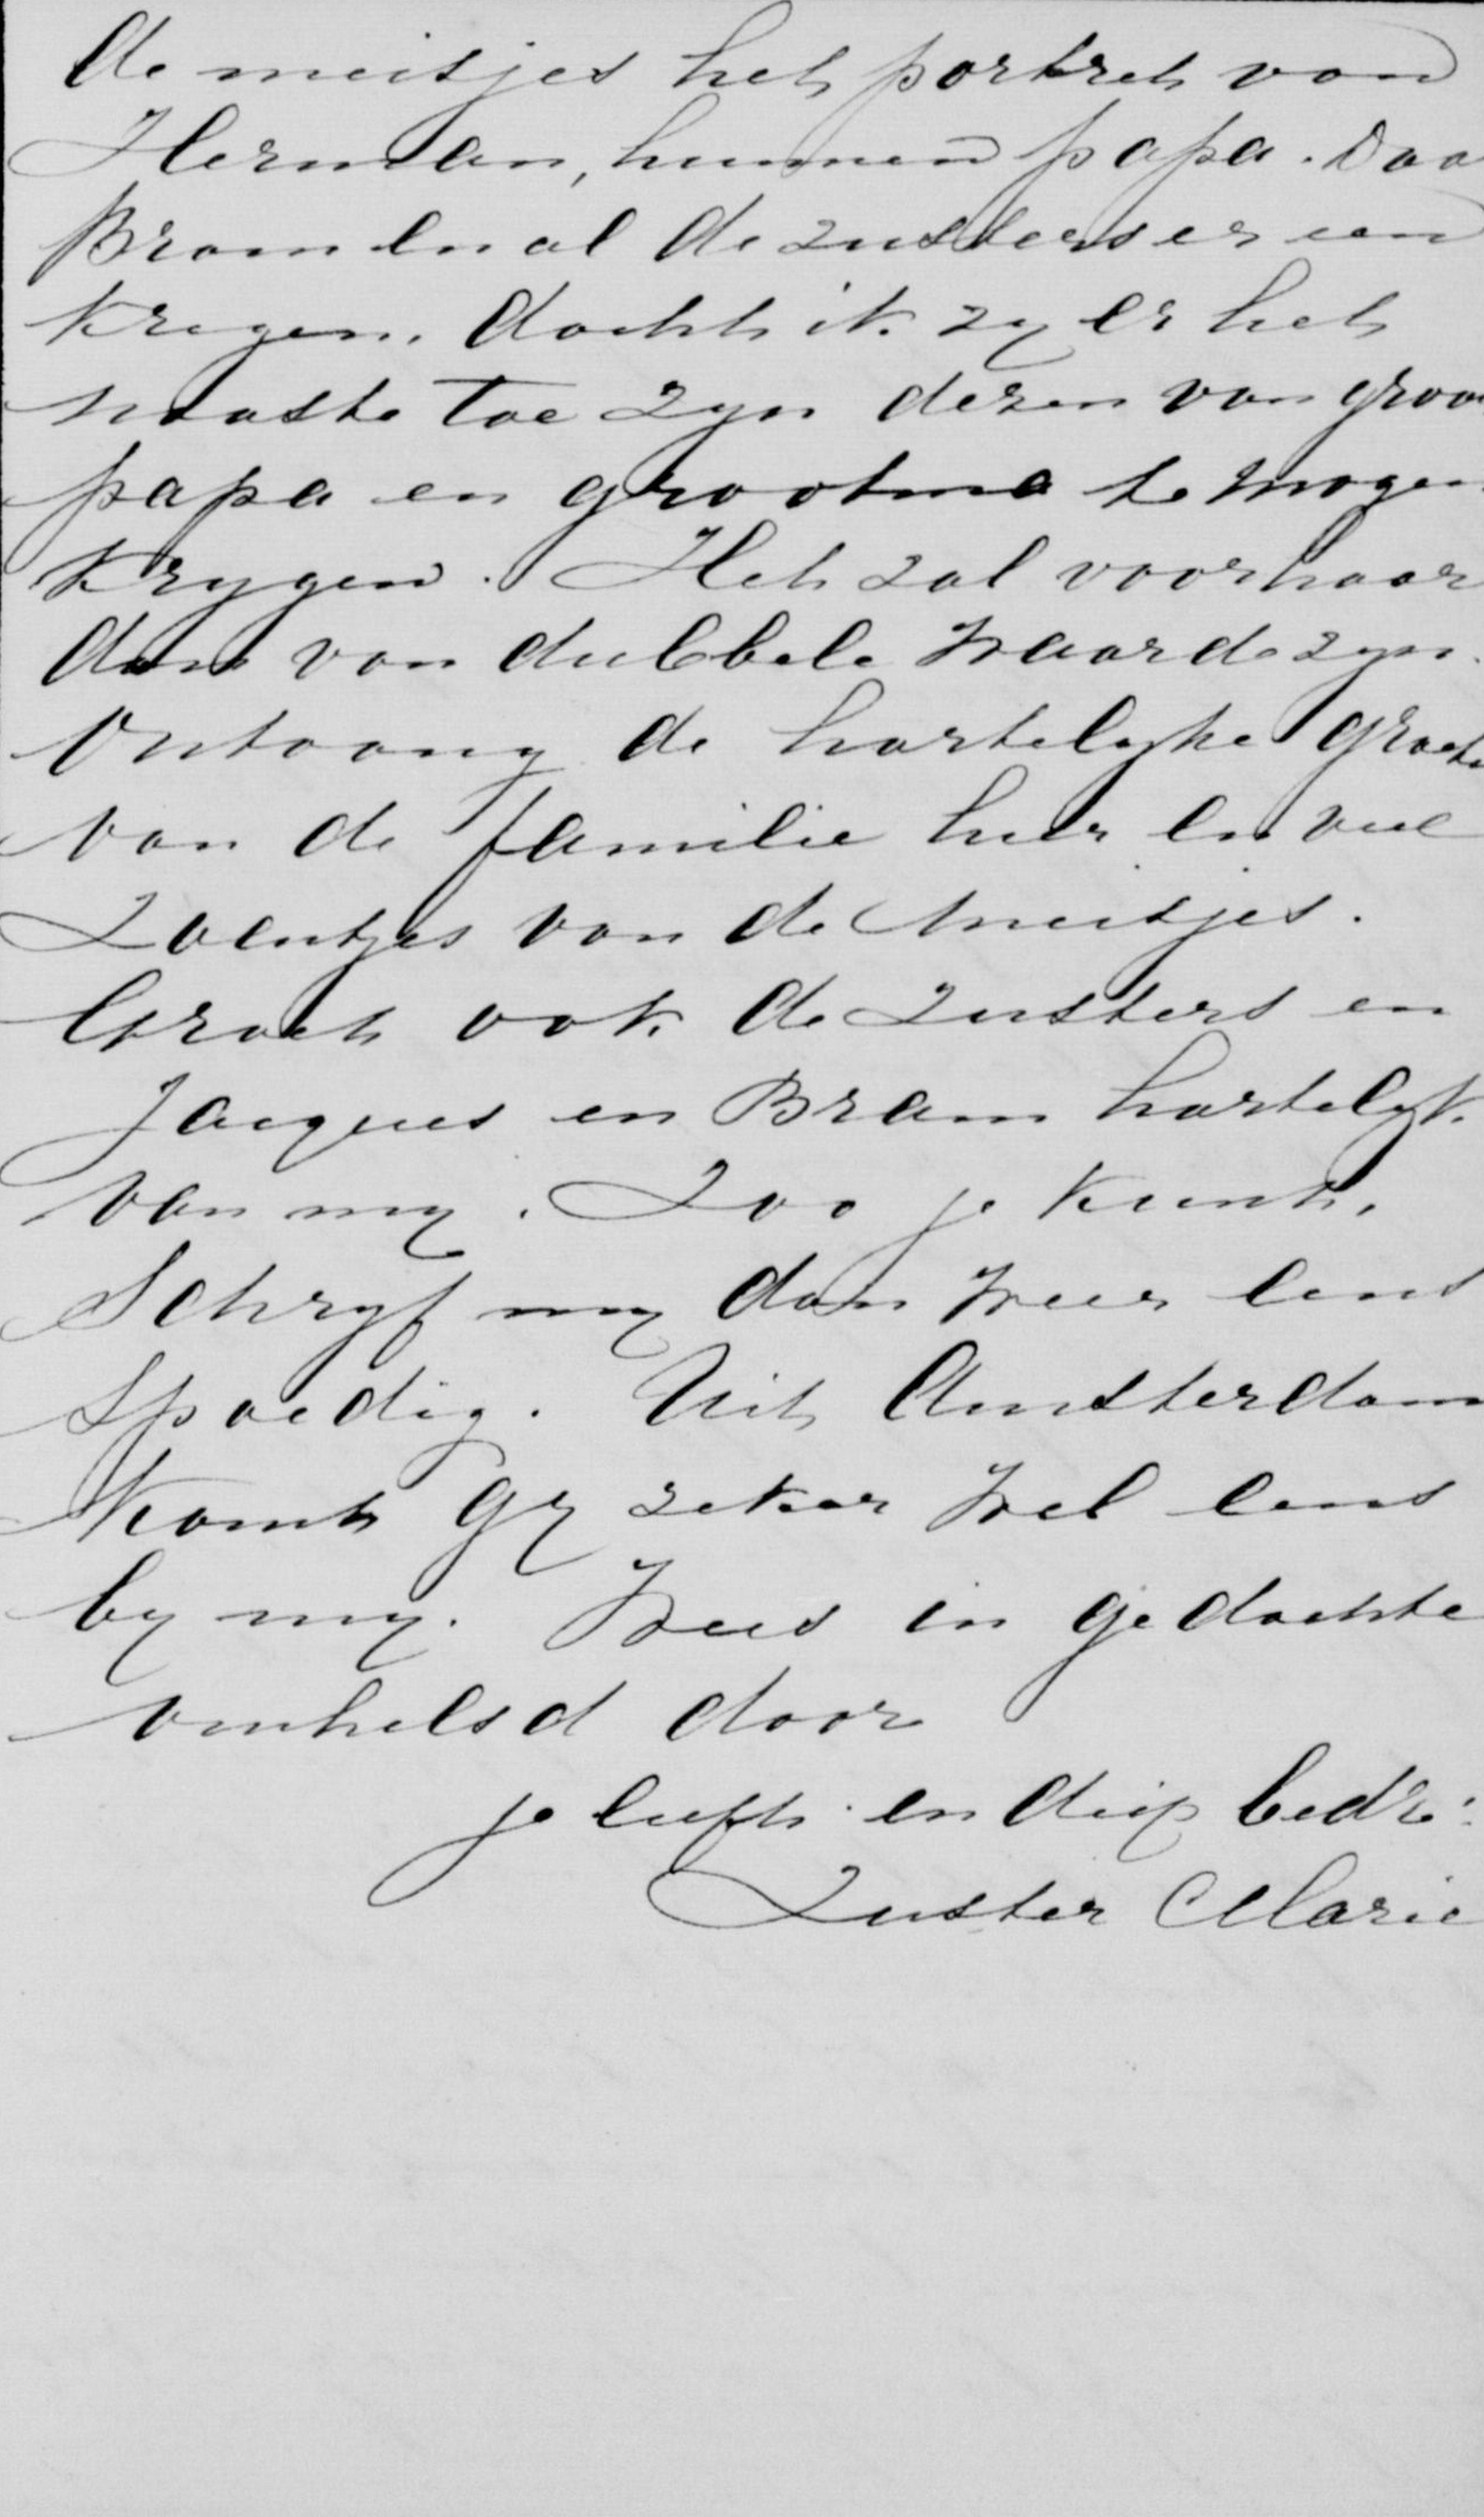 de meisjes het portret van
Herman, hunnen papa. Daa
Bram en al de zusters er een
kregen, dacht ik zy er het
naaste toe zyn dezen van groo
papa en grootma te mogen
krygen. Het zal voor haar
dan van dubbele waarde zyn.
Ontvang de hartelyke groete
van de familie hier en veel
Zoentjes van de meisjes.
Groet ook de Zusters en
Jacques en Bram hartelyk
van my. Zoo je kunt,
Schryf my dan weer eens
Spoedig. Uit Amsterdam
komt gy zeker wel eens
by my. Wees in gedachte
omhelsd door
je liefh. en diep bedr:
Zuster Marie